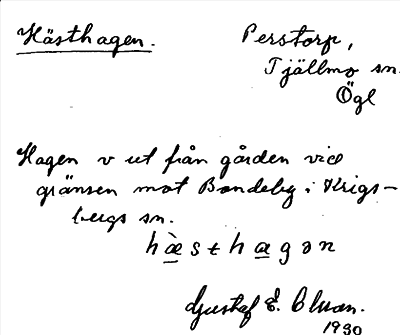 Hästhagen.
Perstorp,
Tjällmo sn.
Ögl
Hagen v ut från gården vid
gränsen mot Bondeby i Krigs-
bergs sn.
hæ̀sthagən
Gustaf E.
1930